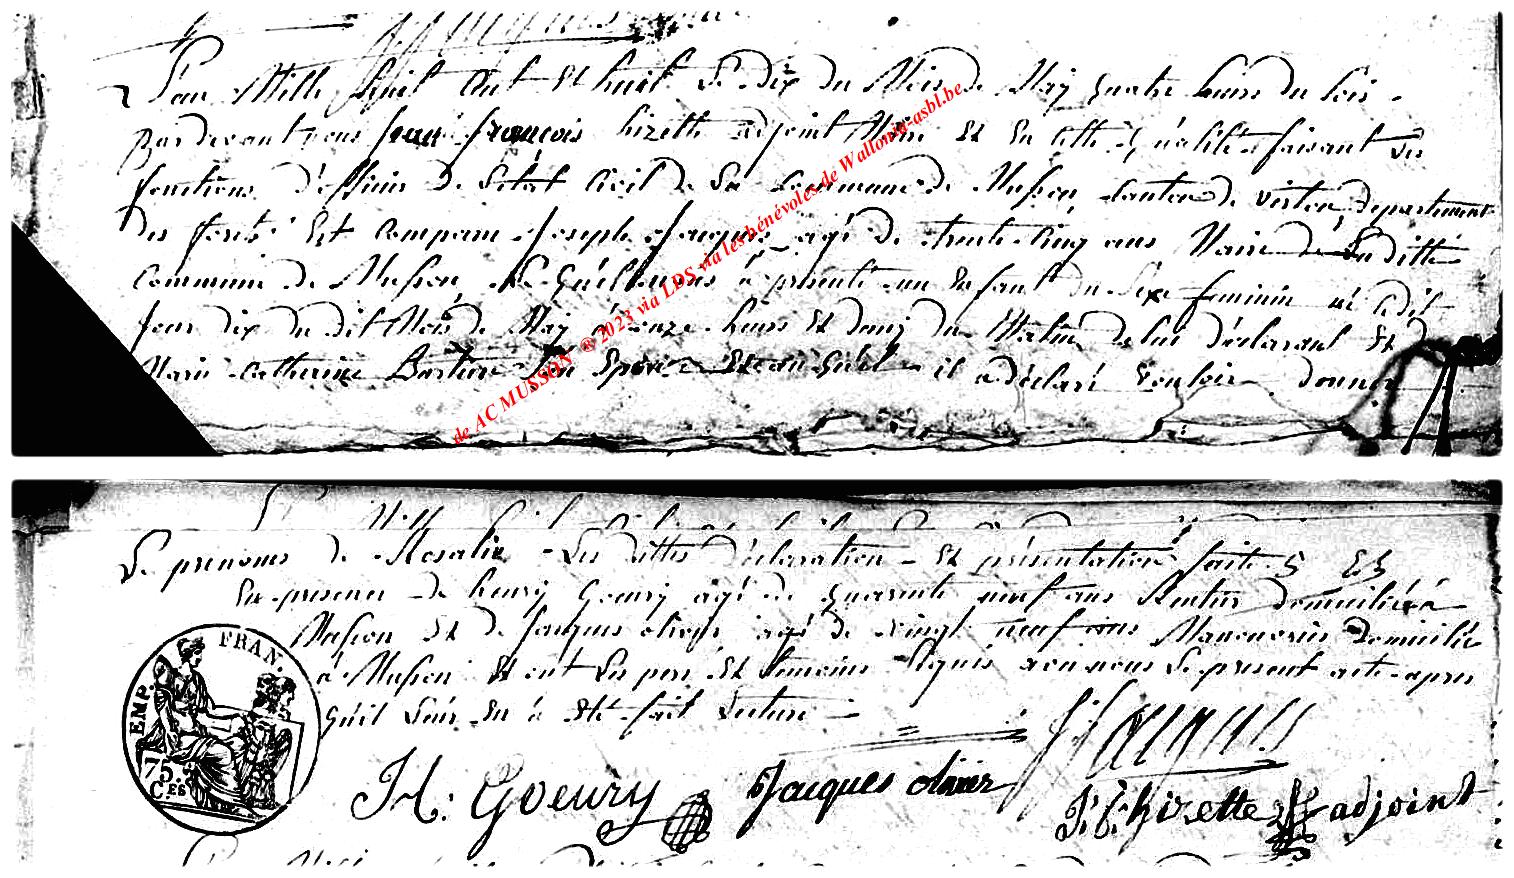 L'an Mille huit Cent Et huit Le dix du Mois de May quatre heures du soir
Pardevant nous jean françois hizette adjoint Maire Et En cette Qualité faisant les
fonctions d'officier De L'Etat Civil De La Commune de Musson Canton De Virton, departement
des forêts Est Comparu Joseph Jacques agé De trente Cinq ans Maire de La ditte
Commune De Musson Lequel Nous a présenté un Enfant Du Sexe feminin né Cedit
Jour dix du dit Mois de May à onze heures Et demy du Matin de lui déclarant Et De
Marie Catherine Son Epouse Et auquel il a déclaré Vouloir donner
Le prenoms de Rosalie Les dittes déclaration Et présentation faites
En presence de henry Goeury agé de quarante neuf ans Rentier domicilié à
Musson Et De Jacques olivier agé de vingt neuf ans Manouvrier Domicilié
à Musson Et ont Les pere Et temoins signés avec nous Le present acte apres
qu'il Leur En à Eté fait Lecture
FRAN.
EMP.
75.
CES
J Jacques
H. Goeury
Jacques olivier
J. f. hizette adjoint
de AC MUSSON ® 2023 via LDS via les bénévoles de Wallonia-asbl.be